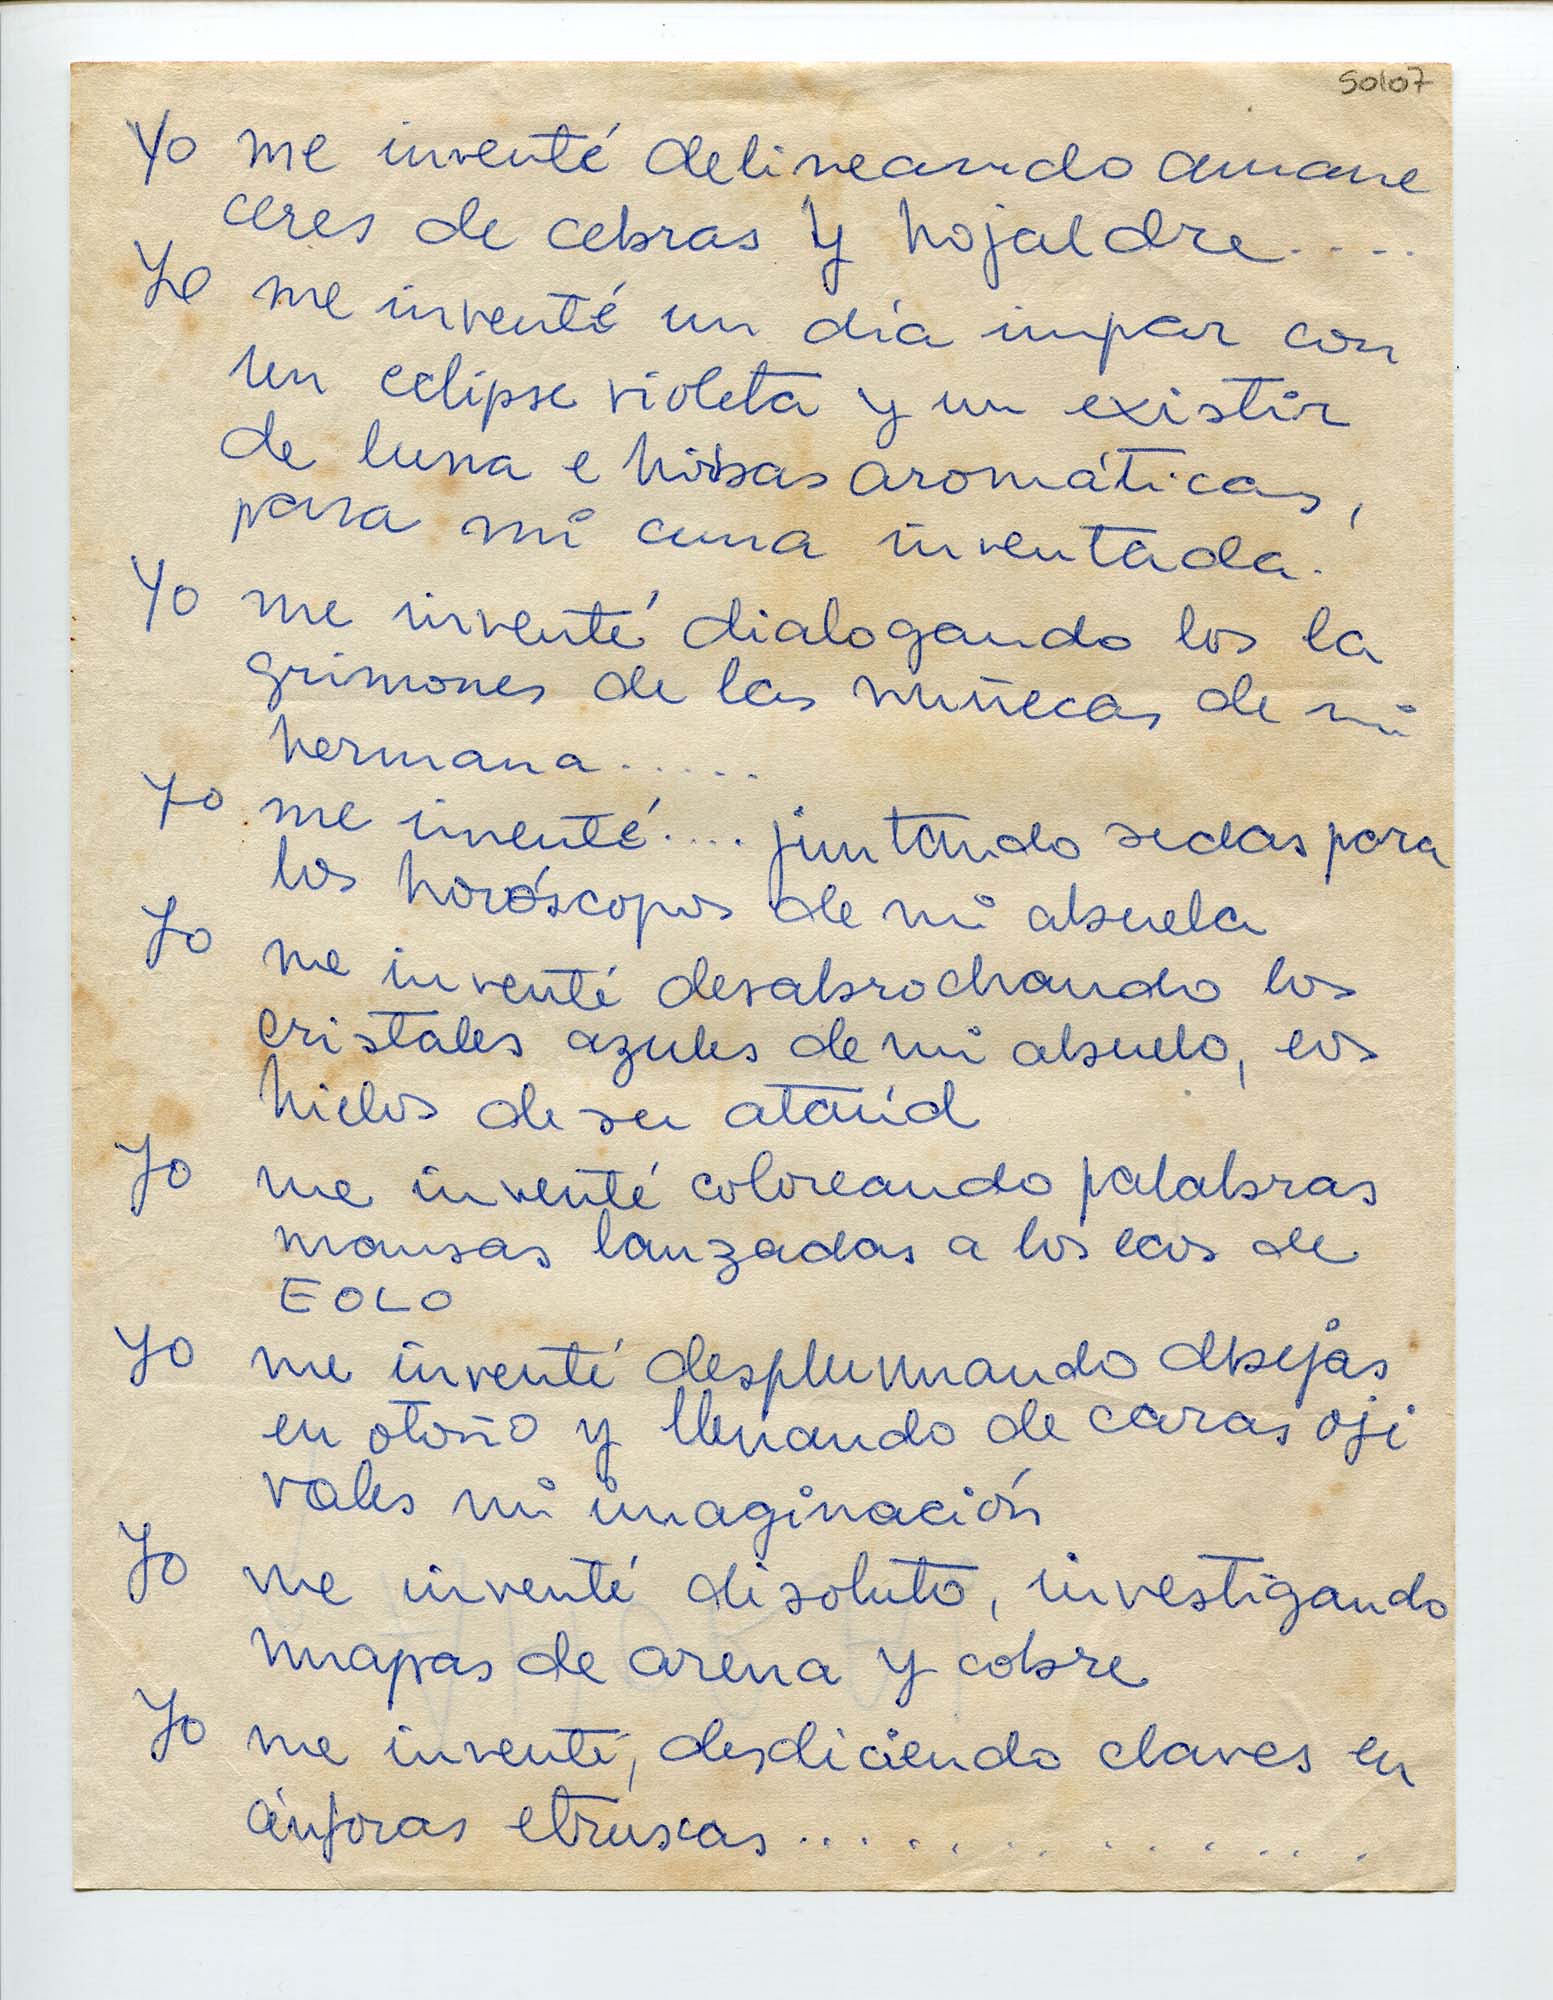 50107
Yo me inventé delineando amane
ceres de cebras y hojaldre....
Yo me inventé un día impar con
un eclipse violeta y un existir
de luna e hisbas aromáticas,
para mi cuna inventada.
Yo me inventé dialogando los la
grimones de las muñecas de mi
hermana.....
Yo me inventé.... juntando sedas para
los horóscopos de mi abuela
Yo me inventé desabrochando los
cristales azules de mi abuelo, los
hielos de su ataúd
Yo me inventé coloreando palabras
mansas lanzadas a los ecos de
EOLO
Yo me inventé desplumando abejas
en otoño y llenando de caras oji
vales mi imaginación
Yo me inventé disoluto, investigando
mapas de arena y cobre
Yo me inventé, desdiciendo claves en
ánforas etruscas..........